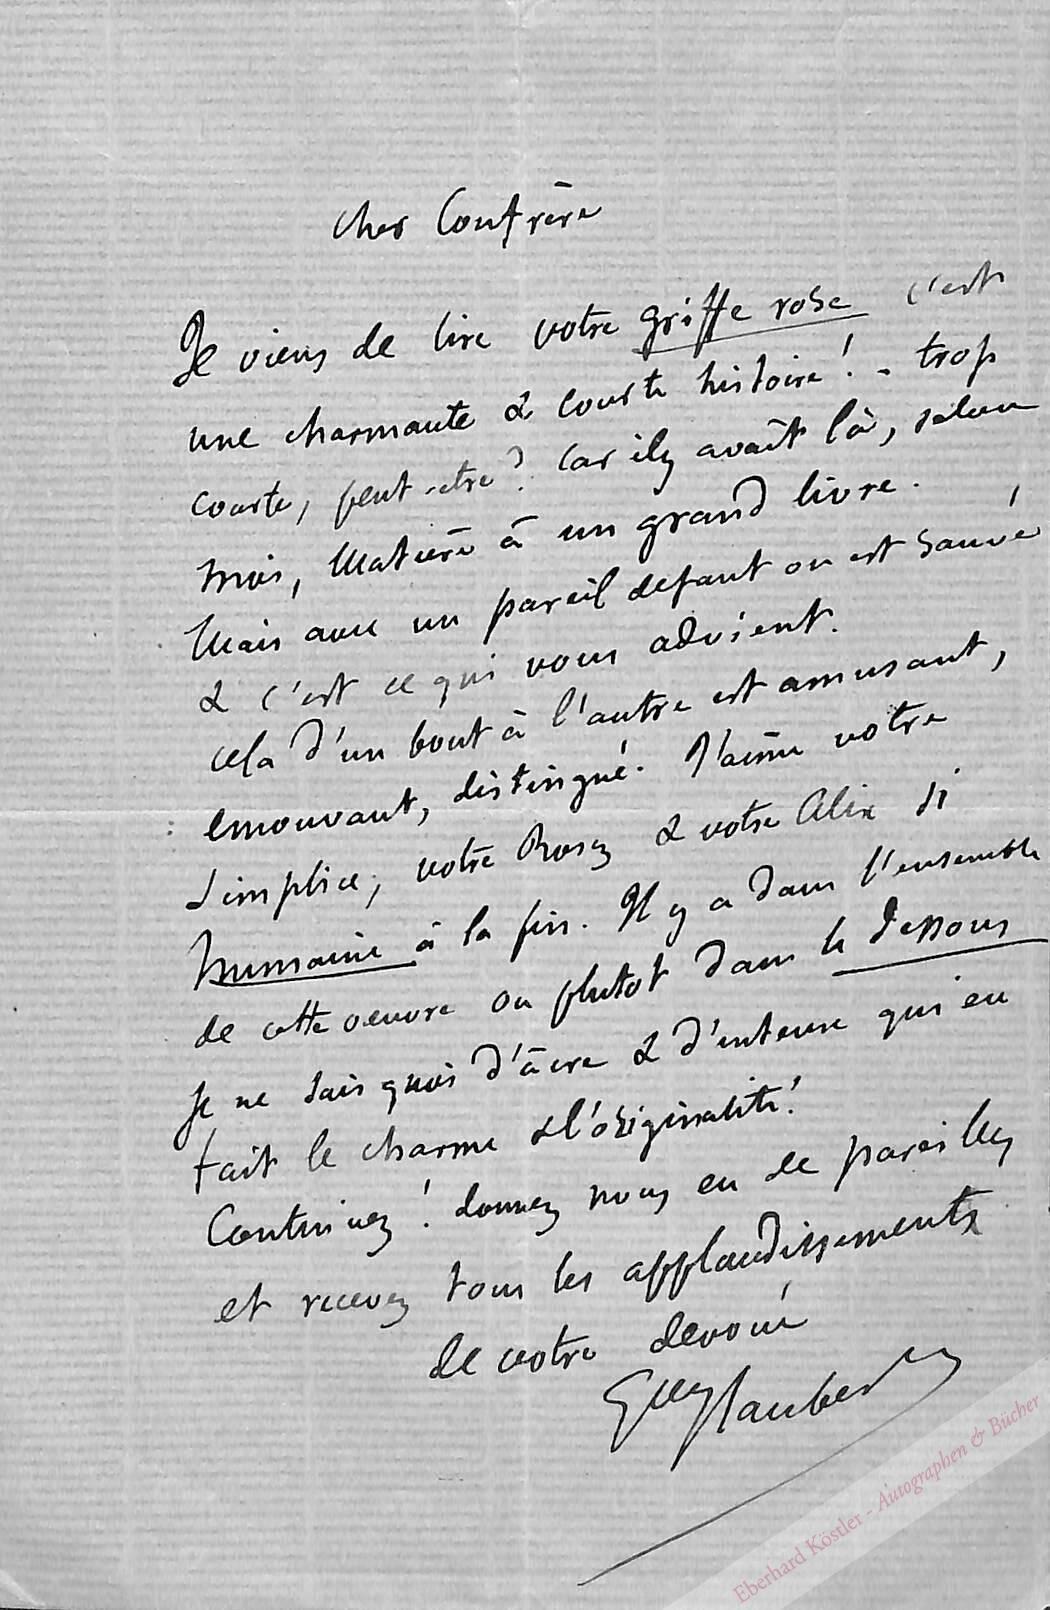 Cher Confrère
Je viens de lire votre griffe rose c'est
une charmante & courte histoire! - trop
courte, peut-etre? Car il y avait là, selon
moi, Matière à un grand livre.
Mais avec un pareil defaut on est sauvé
& c'est ce qui vous advient.
cela d'un bout à l'autre est amusant,
emouvant, distingué. J'aime votre
Simplice, votre Rosey & votre Alix si
humaine à la fin. Il y a dans l'ensemble
de cette oeuvre ou plutot dans le dessous
Je ne sais quoi d'âcre & d'intense qui en
fait le charme & l'originalité!
Continuez! donnez nous en de pareilles
et recevez tous les applaudissements
de votre devoué
GveFlaubert
Eberhard Köstler - Autographen & Bücher